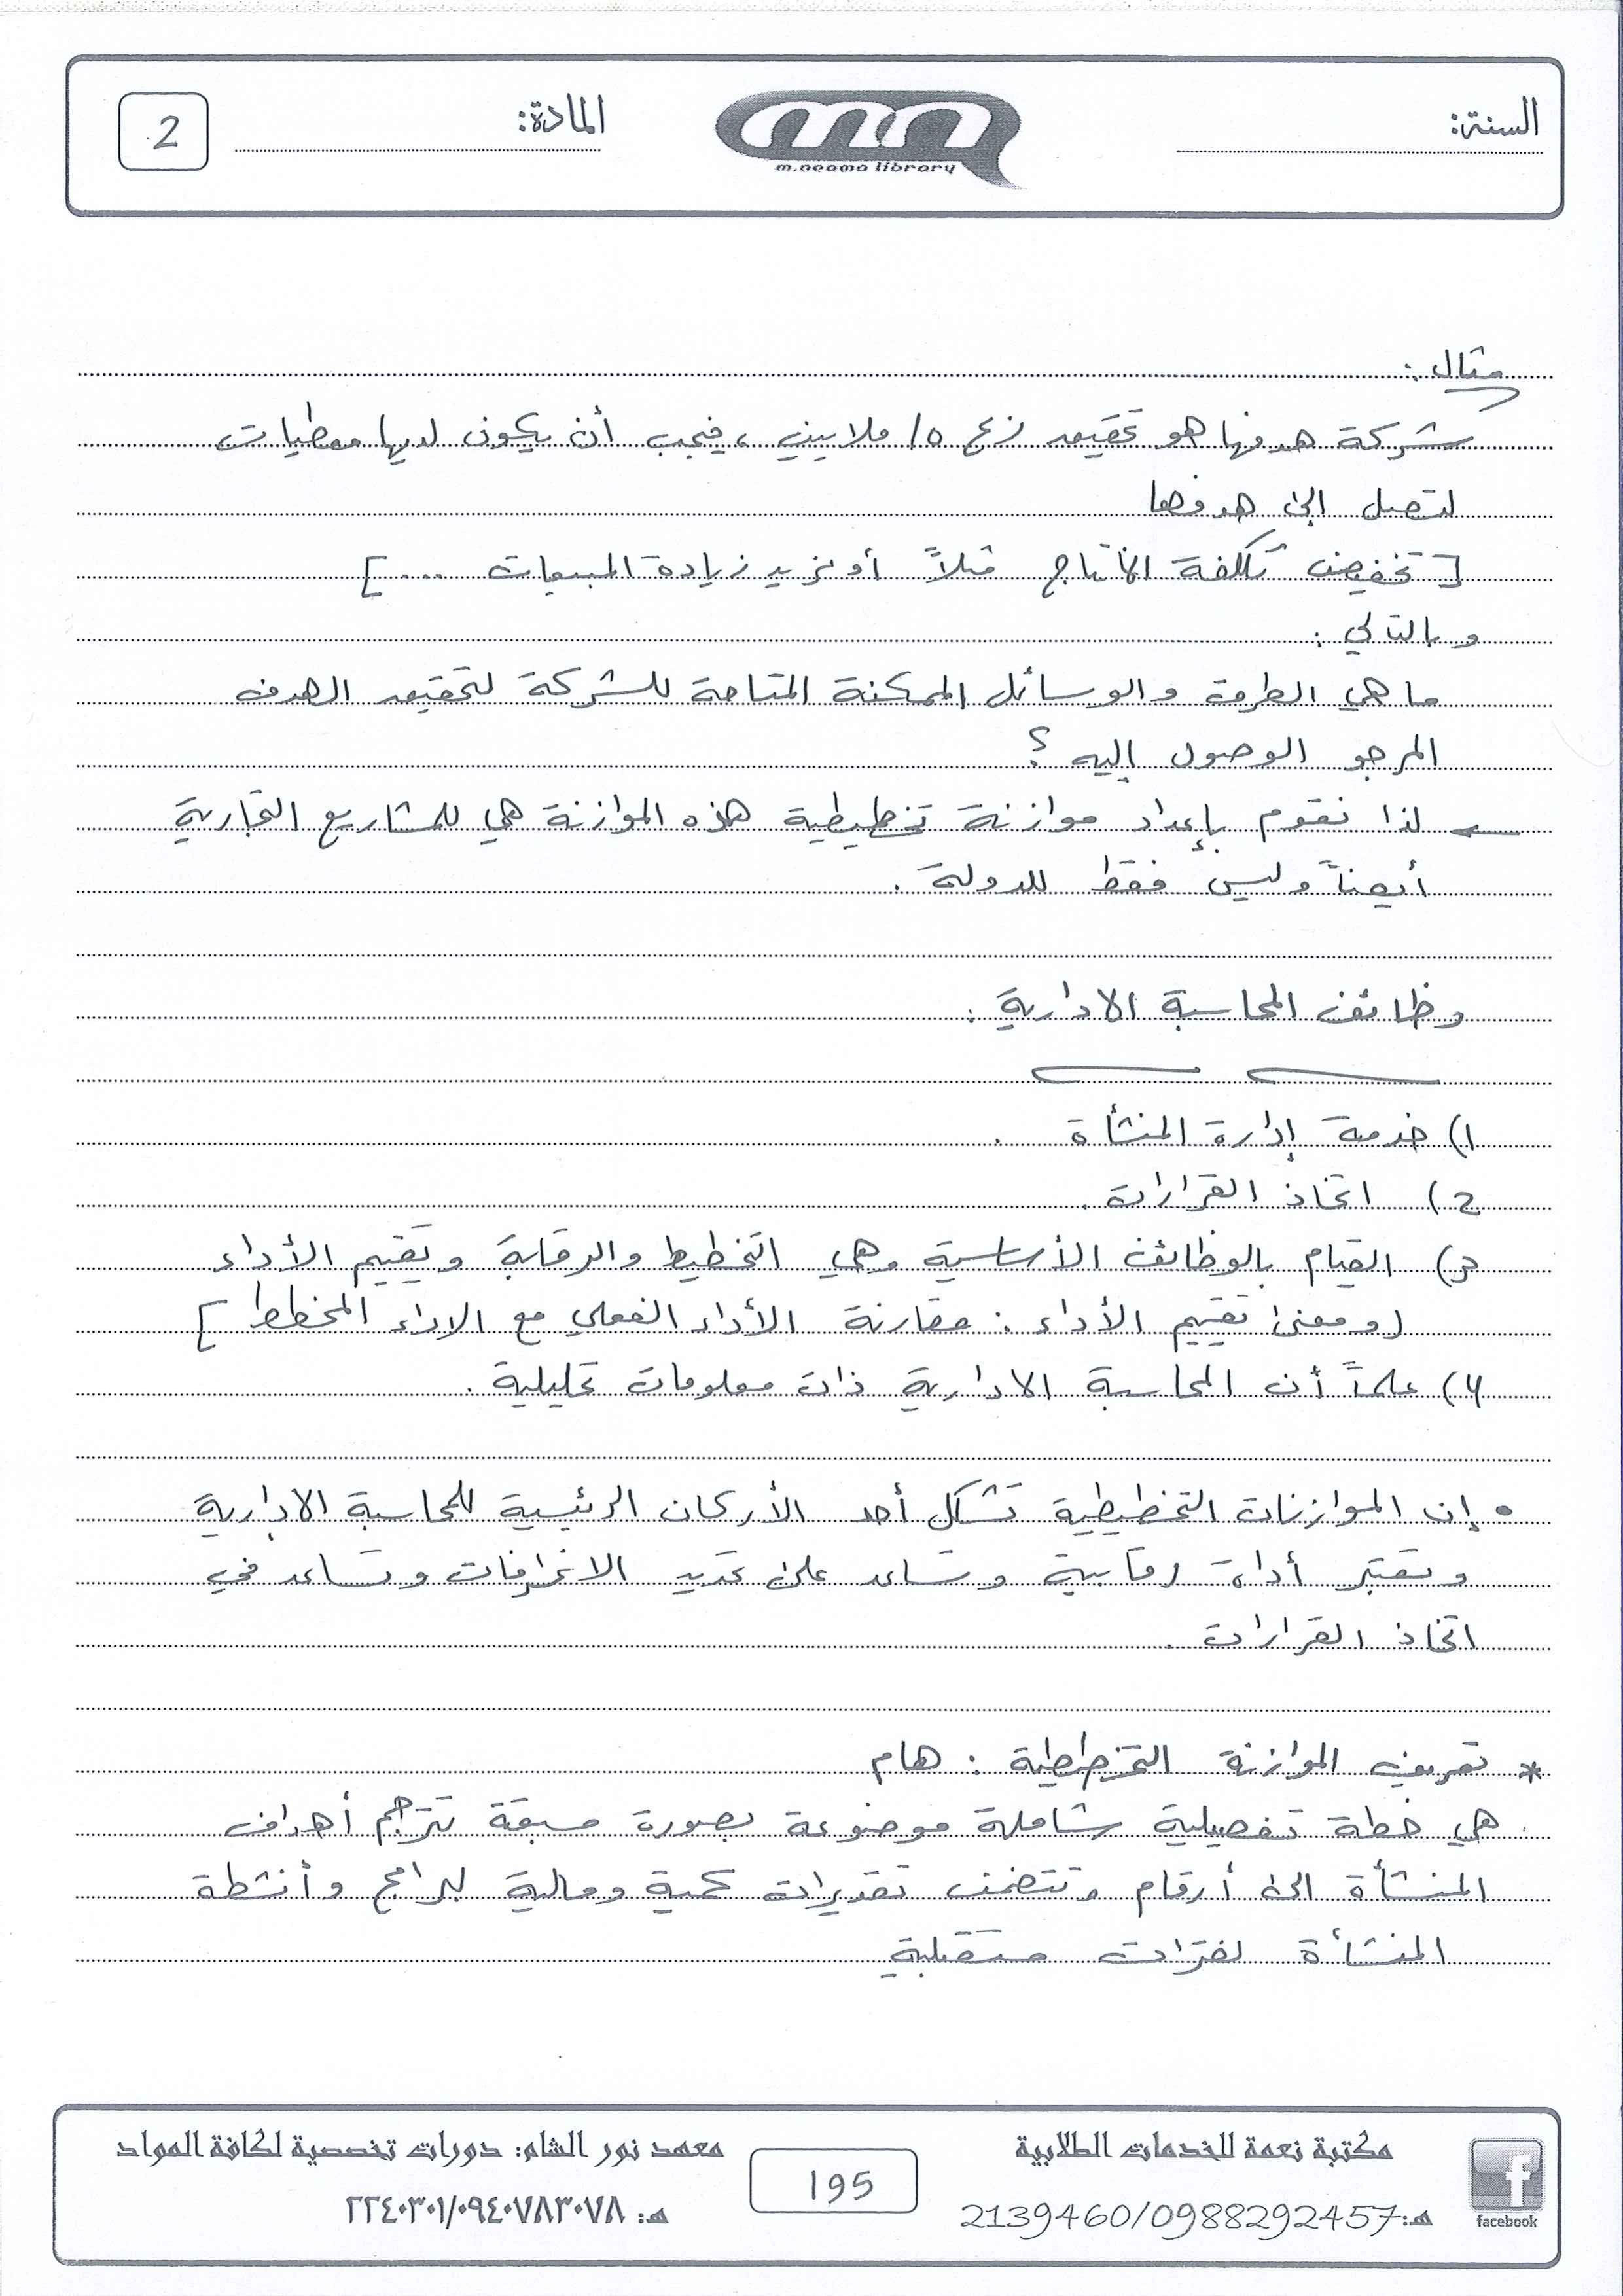 السنة:
m.neama library
المادة:
2
مثال :
شركة هدفها هو تحقيق ربح 10 ملايين ، فيجب أن يكون لديها معطيات
لتصل إلى هدفها
[ تخفيض تكلفة الانتاج مثلاً أو نريد زيادة المبيعات .... ]
وبالتالي :
ما هي الطرق والوسائل الممكنة المتاحة للشركة لتحقيق الهدف
المرجو الوصول إليه ؟
← لذا نقوم بإعداد موازنة تخطيطية هذه الموازنة هي للمشاريع التجارية
أيضاً وليس فقط للدولة .
وظائف المحاسبة الادارية :
1) خدمة إدارة المنشأة .
2) اتخاذ القرارات .
3) القيام بالوظائف الأساسية وهي التخطيط والرقابة وتقييم الأداء
( ومعنى تقييم الأداء : مقارنة الأداء الفعلي مع الاداء المخطط ]
4) علماً أن المحاسبة الادارية ذات معلومات تحليلية .
• إن الموازنات التخطيطية تشكل أحد الأركان الرئيسية للمحاسبة الادارية
وتعتبر أداة رقابية وتساعد على تحديد الانحرافات وتساعد في
اتخاذ القرارات .
* تعريف الموازنة التخطيطية : هام
هي خطة تفصيلية شاملة موضوعة بصورة مسبقة تترجم أهداف
المنشأة الى أرقام وتتضمن تقديرات كمية ومالية لبرامج وأنشطة
المنشأة لفترات مستقبلية
مكتبة نعمة للخدمات الطلابية
هـ:2139460/0988292457
facebook
195
معهد نور الشام: دورات تخصصية لكافة المواد
هـ: ٢٢٤٠٣٠١/٠٩٤٠٧٨٣٠٧٨